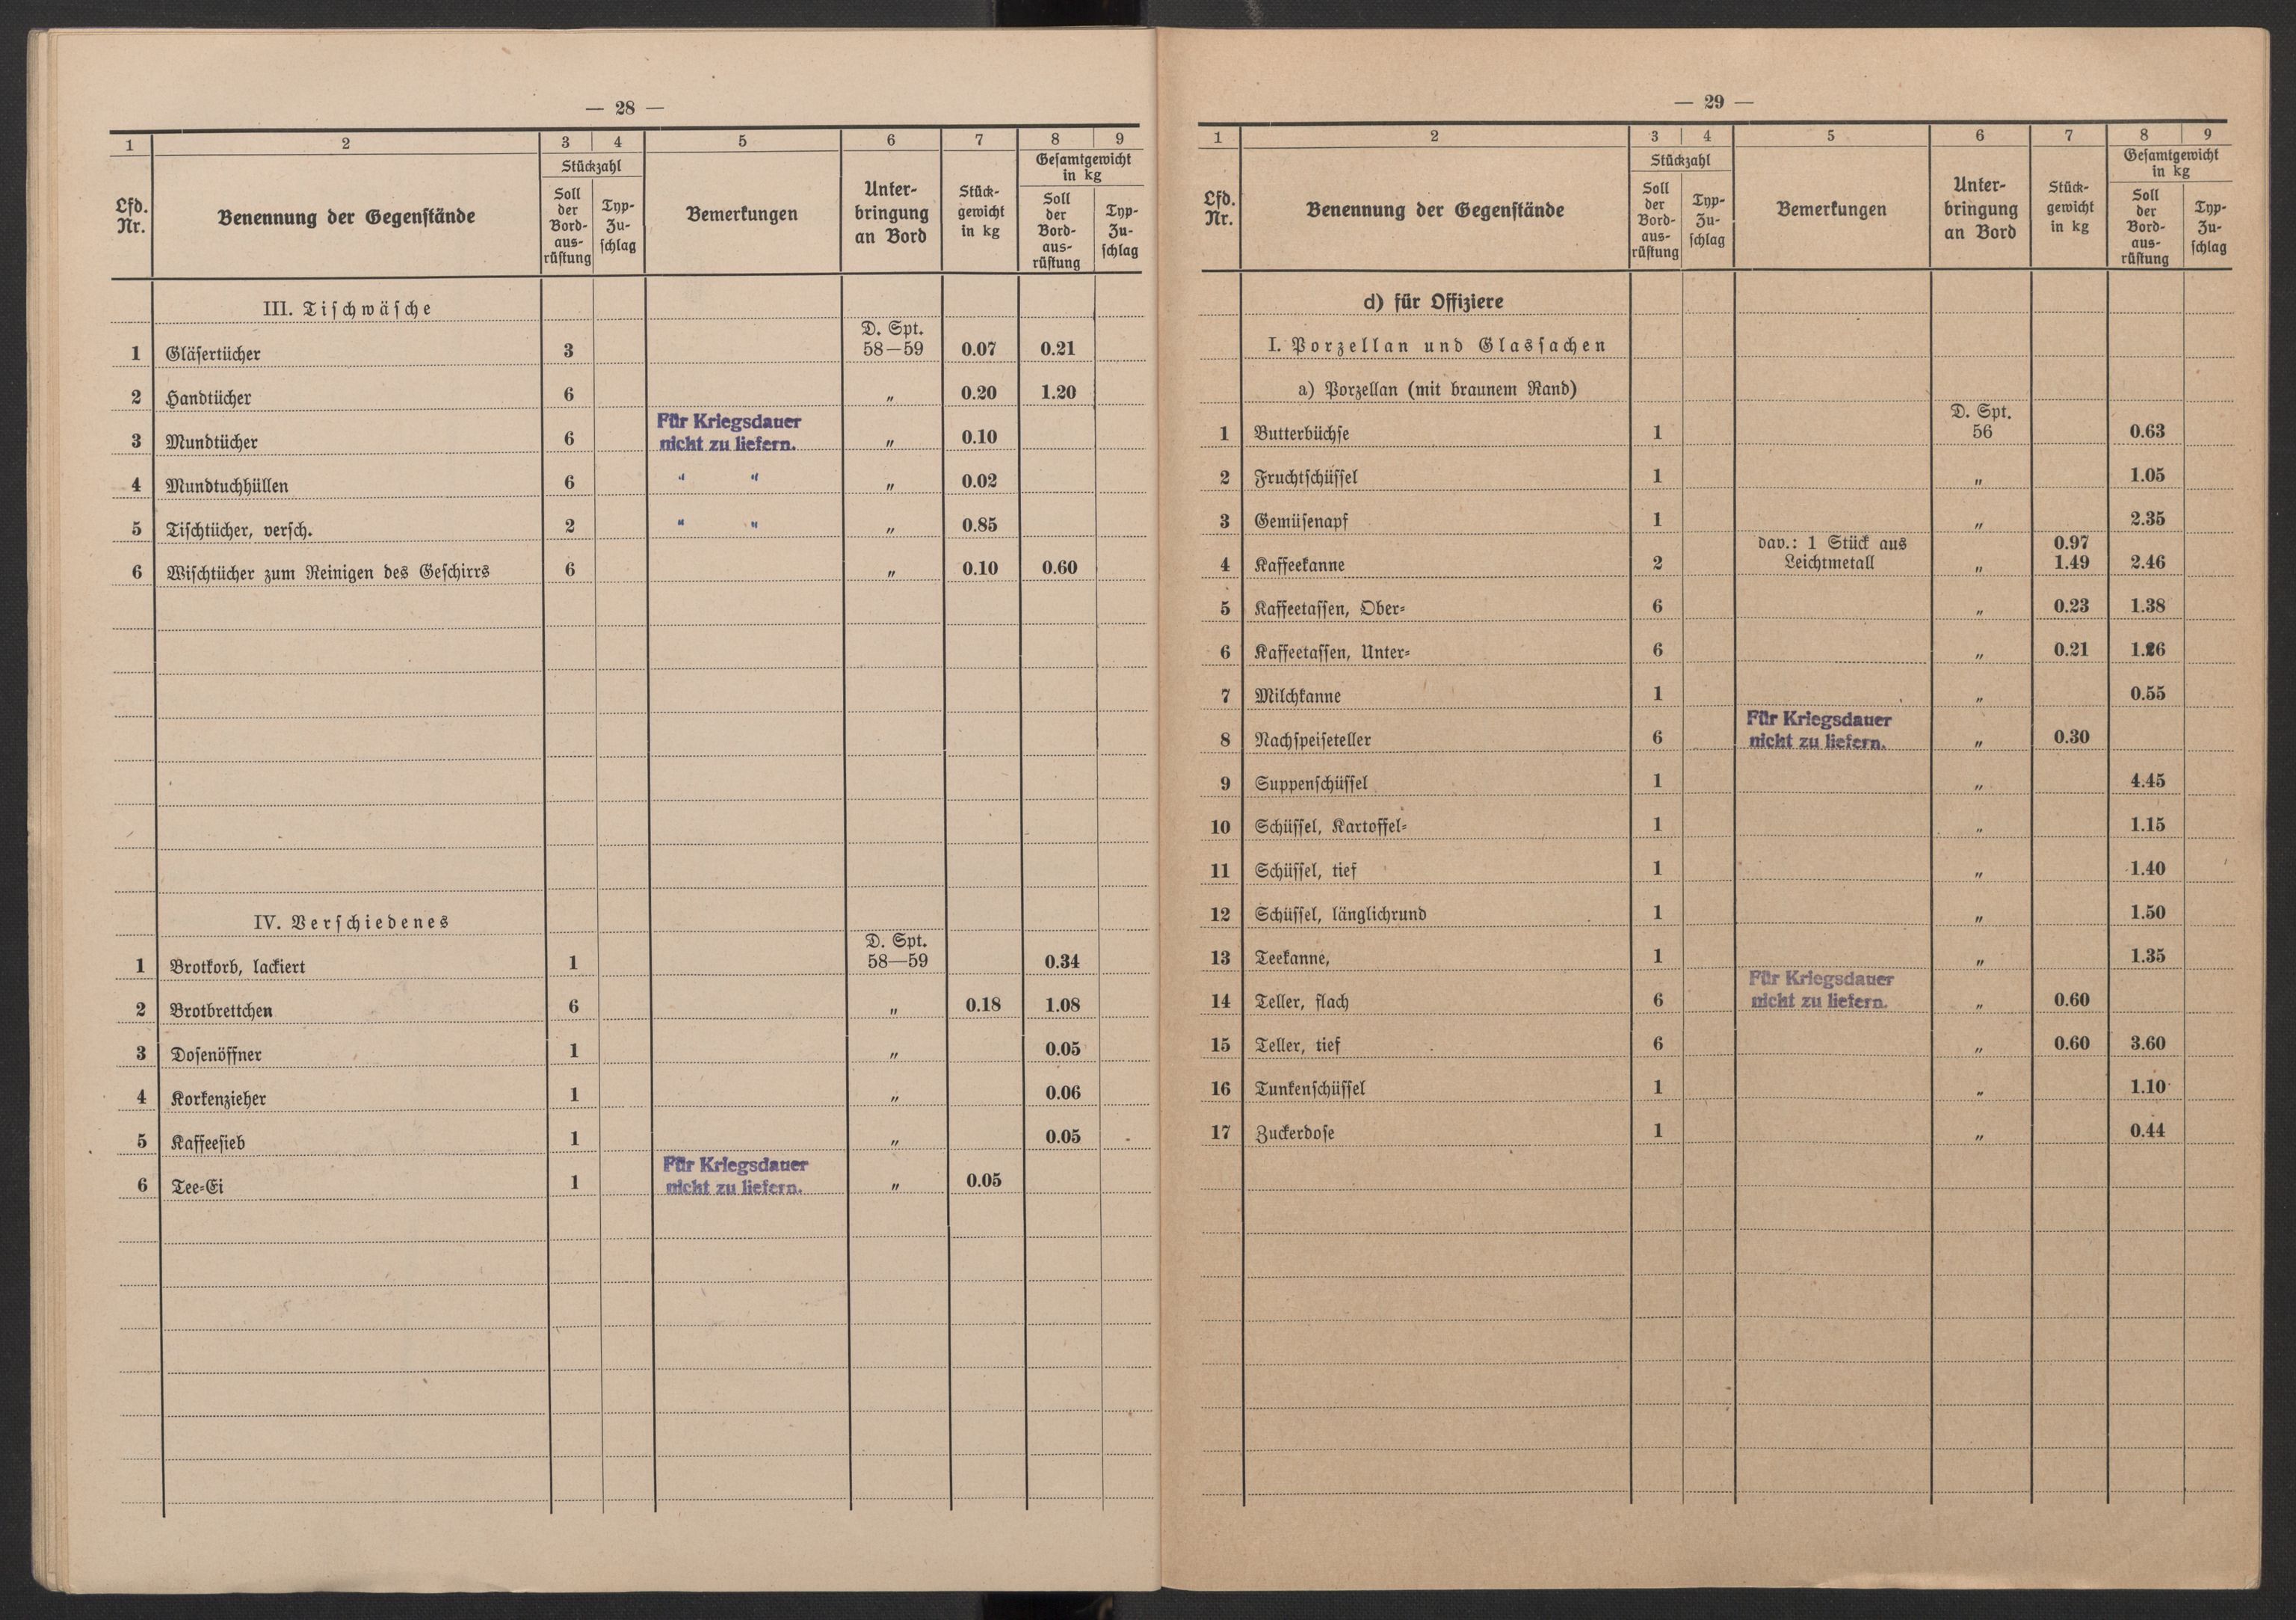 — 28 —
1 2 3 4 5 6 7 8 9
Lfd. Nr. Benennung der Gegenstände Stückzahl Soll der Bord-aus-rüstung Typ-Zu-schlag Bemerkungen Unter-bringung an Bord Stück-gewicht in kg Gesamtgewicht in kg Soll der Bord-aus-rüstung Typ-Zu-schlag
III. Tischwäsche
D. Spt.
1 Gläsertücher 3 58—59 0.07 0.21
2 Handtücher 6 „ 0.20 1.20
Für Kriegsdauer
3 Mundtücher 6 nicht zu liefern. „ 0.10
4 Mundtuchhüllen 6 " " „ 0.02
5 Tischtücher, versch. 2 " " „ 0.85
6 Wischtücher zum Reinigen des Geschirrs 6 „ 0.10 0.60
IV. Verschiedenes
D. Spt.
1 Brotkorb, lackiert 1 58—59 0.34
2 Brotbrettchen 6 „ 0.18 1.08
3 Dosenöffner 1 „ 0.05
4 Korkenzieher 1 „ 0.06
5 Kaffeesieb 1 „ 0.05
Für Kriegsdauer
6 Tee-Ei 1 nicht zu liefern. „ 0.05
— 29 —
1 2 3 4 5 6 7 8 9
Lfd. Nr. Benennung der Gegenstände Stückzahl Soll der Bord-aus-rüstung Typ-Zu-schlag Bemerkungen Unter-bringung an Bord Stück-gewicht in kg Gesamtgewicht in kg Soll der Bord-aus-rüstung Typ-Zu-schlag
d) für Offiziere
I. Porzellan und Glassachen
a) Porzellan (mit braunem Rand)
D. Spt.
1 Butterbüchse 1 56 0.63
2 Fruchtschüssel 1 „ 1.05
3 Gemüsenapf 1 „ 2.35
dav.: 1 Stück aus 0.97
4 Kaffeekanne 2 Leichtmetall „ 1.49 2.46
5 Kaffeetassen, Ober- 6 „ 0.23 1.38
6 Kaffeetassen, Unter- 6 „ 0.21 1.26
7 Milchkanne 1 „ 0.55
Für Kriegsdauer
8 Nachspeiseteller 6 nicht zu liefern. „ 0.30
9 Suppenschüssel 1 „ 4.45
10 Schüssel, Kartoffel- 1 „ 1.15
11 Schüssel, tief 1 „ 1.40
12 Schüssel, länglichrund 1 „ 1.50
13 Teekanne, 1 „ 1.35
Für Kriegsdauer
14 Teller, flach 6 nicht zu liefern. „ 0.60
15 Teller, tief 6 „ 0.60 3.60
16 Tunkenschüssel 1 „ 1.10
17 Zuckerdose 1 „ 0.44